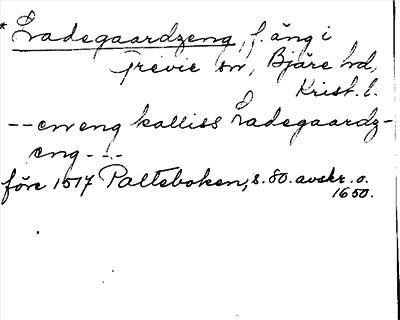 * Ladegaardzeng, f. äng i
Grevie sn, Bjäre hd,
Krist. l.
-- en eng kalliss Ladegaardz-
eng - - -
före 1517 Palteboken, s. 80. avskr. o.
1650.